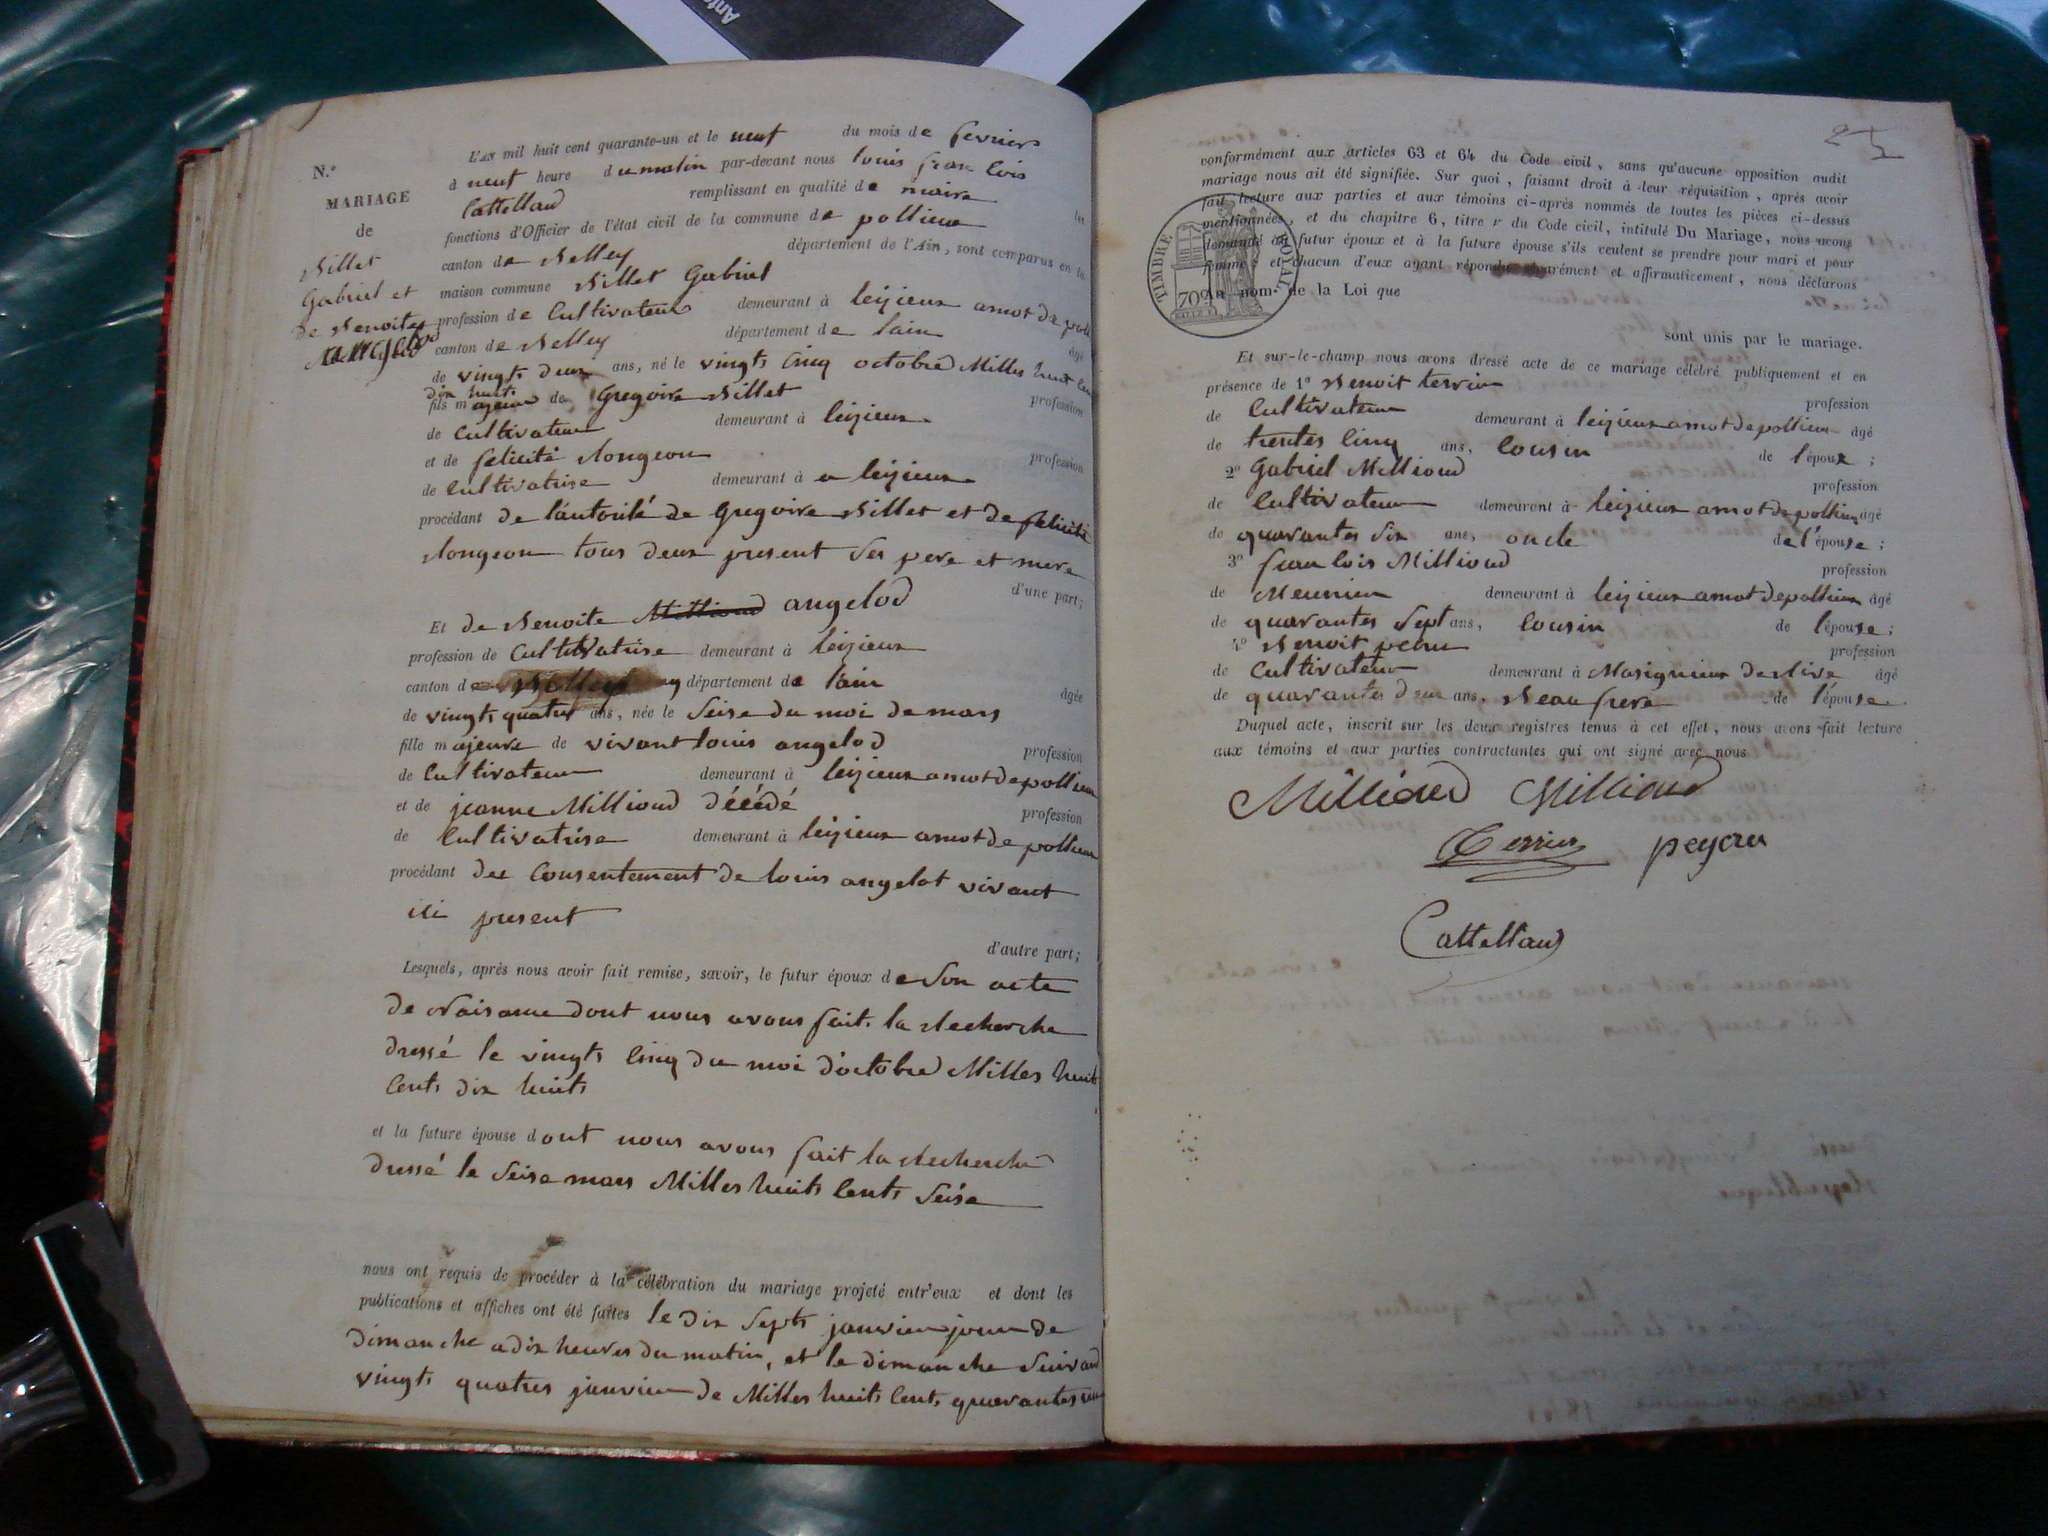 Anto
N.º
MARIAGE
de
Billet
Gabriel et
de Benoite
Angelod
L'AN mil huit cent quarante-un et le neuf du mois de fevrier
à neuf heure du matin par-devant nous louis fran cois
Cattelland remplissant en qualité de maire les
fonctions d'Officier de l'état civil de la commune de pollieu
canton de Belley département de l'Ain, sont comparus en la
maison commune Billet Gabriel
profession de Cultivateur demeurant à leijieux amot de poll
canton de Belley département de lain âgé
de vingts deux ans, né le vingts cinq octobre Milles huit cen
dix huits
fils majeur de Gregoire Billet profession
de Cultivateur demeurant à leijieux
et de felicité Longeon profession
de Cultivatrise demeurant à a leijieux
procédant de láutorité de Gregoire Billet et de felicité
Longeon tous deux present Ses pere et mere
d'une part;
Et de Benoite Millioud angelod
profession de Cultivatrise demeurant à leijieux
canton de Belley département de lain âgée
de vingts quatre ans, née le Seise du moi de mars
fille majeure de vivant louis angelod profession
de Cultivateur demeurant à leijieux amot de pollieu
et de jeanne Millioud décédé profession
de Cultivatrise demeurant à leijieux amot de pollieu
procédant du Consentement de louis angelot vivant
ici present
d'autre part;
Lesquels, après nous avoir fait remise, savoir, le futur époux de Son acte
de Naisance dont nous avons fait la Recherche
dressé le vingts cinq du moi d'octobre Milles huit
Cents dix huits
et la future épouse dont nous avons fait la Recherche
dressé le Seise mars Milles huits Cents Seise
nous ont requis de procéder à la célébration du mariage projeté entr'eux et dont les
publications et affiches ont été faites le dix Septs janvier jour de
dimanche a dix heures du matin, et le dimanche Suivand
vingts quatres janvier de Milles huits Cents quarantes un
25
conformément aux articles 63 et 64 du Code civil, sans qu'aucune opposition audit
mariage nous ait été signifiée. Sur quoi, faisant droit à leur réquisition, après avoir
fait lecture aux parties et aux témoins ci-après nommés de toutes les pièces ci-dessus
mentionnées, et du chapitre 6, titre V du Code civil, intitulé Du Mariage, nous avons
demandé au futur époux et à la future épouse s'ils veulent se prendre pour mari et pour
femme; et chacun d'eux ayant répondu séparément et affirmativement, nous déclarons
Au nom de la Loi que
TIMBRE ROYAL
70
sont unis par le mariage.
Et sur-le-champ nous avons dressé acte de ce mariage célébré publiquement et en
présence de 1º Benoit terrier
profession
de Cultivateur demeurant à leijieux amot de pollieu âgé
de trentes cinq ans, cousin de lépoux;
2º Gabriel Millioud profession
de Cultivateur demeurant à leijieux amot de pollieu âgé
de quarantes Six ans, oncle de l'épouse;
3º fran cois Millioud profession
de Meunier demeurant à leijieux amot de pollieu âgé
de quarantes Sept ans, cousin de lépouse;
4º Benoit profession
de Cultivateur demeurant à Masignieu de Rive âgé
de quarantes deux ans, Beau frere de l'épouse
Duquel acte, inscrit sur les deux registres tenus à cet effet, nous avons fait lecture
aux témoins et aux parties contractantes qui ont signé avec nous
Millioud Millioud
Terrier peycru
Cattelland